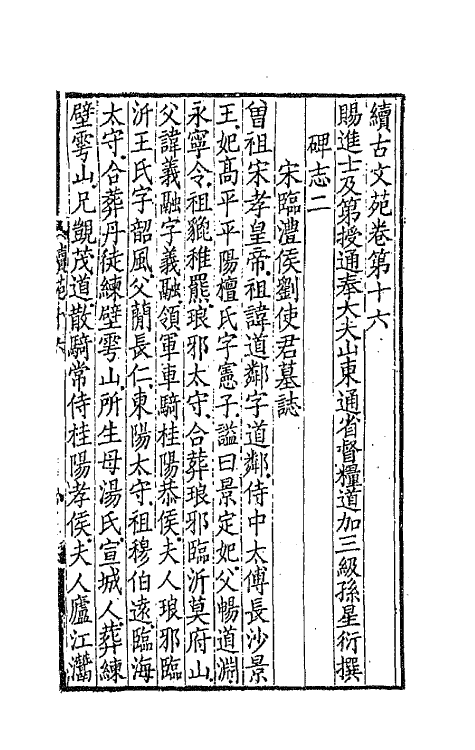 續古文苑卷第十六
賜進士及第授通奉大夫山東通省督糧道加三級孫星衍撰
碑志二
宋臨澧侯劉使君墓誌
曾祖宋孝皇帝祖諱道鄰字道鄰侍中太傅長沙景
王妃高平平陽檀氏字憲子謚曰景定妃父暢道淵
永寧令祖貔稚羆琅邪太守合葬琅邪臨沂莫府山
父諱義融字義融領軍車騎桂陽恭侯夫人琅邪臨
沂王氏字韶風父蕑長仁東陽太守祖穆伯遠臨海
太守合葬丹徒練壁雩山所生母湯氏宣城人葬練
壁雩山兄覬茂道散騎常侍桂陽孝侯夫人廬江灊